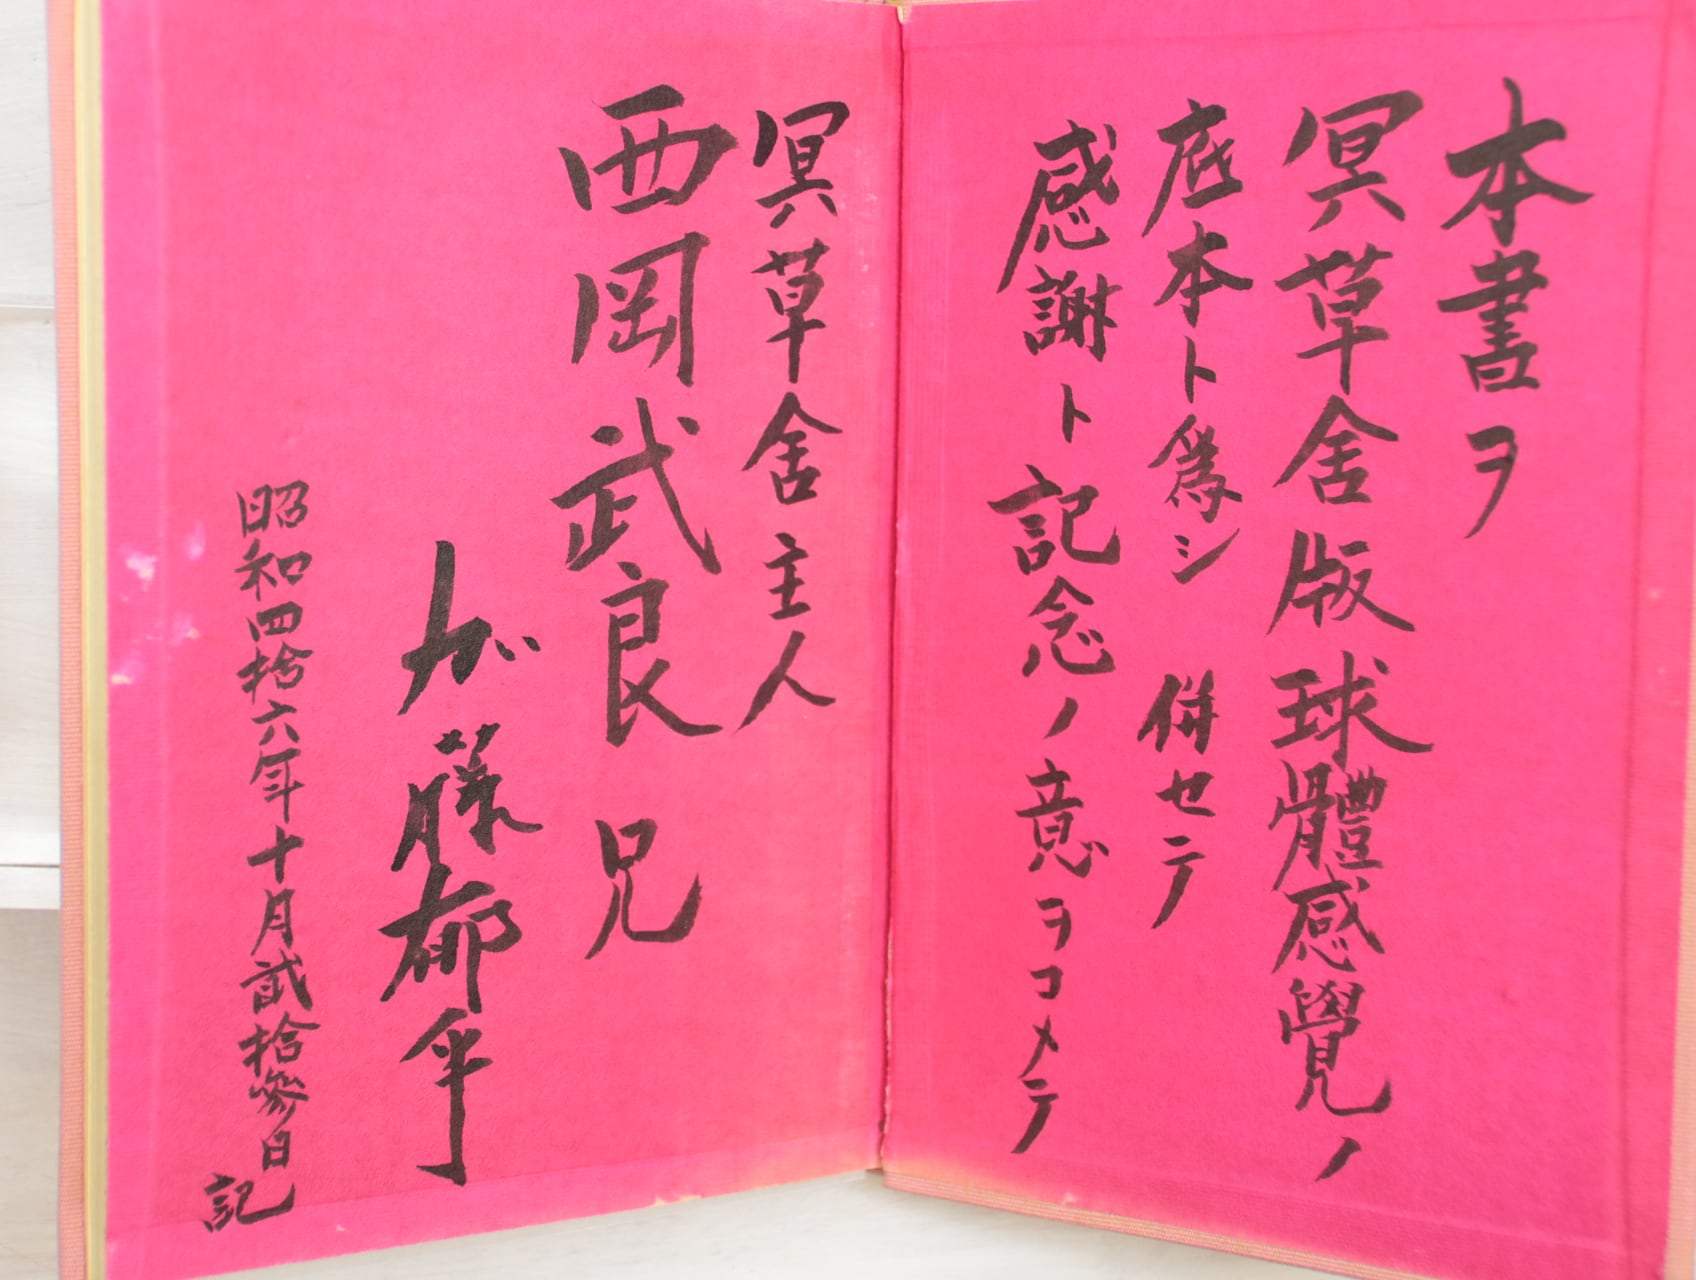 本書ヲ
冥草舎版球體感覺ノ
底本ト爲シ 併セテ
感謝ト記念ノ意ヲコメテ
冥草舎主人
西岡武良兄
加藤郁乎
昭和四拾六年十月貳拾參日
記